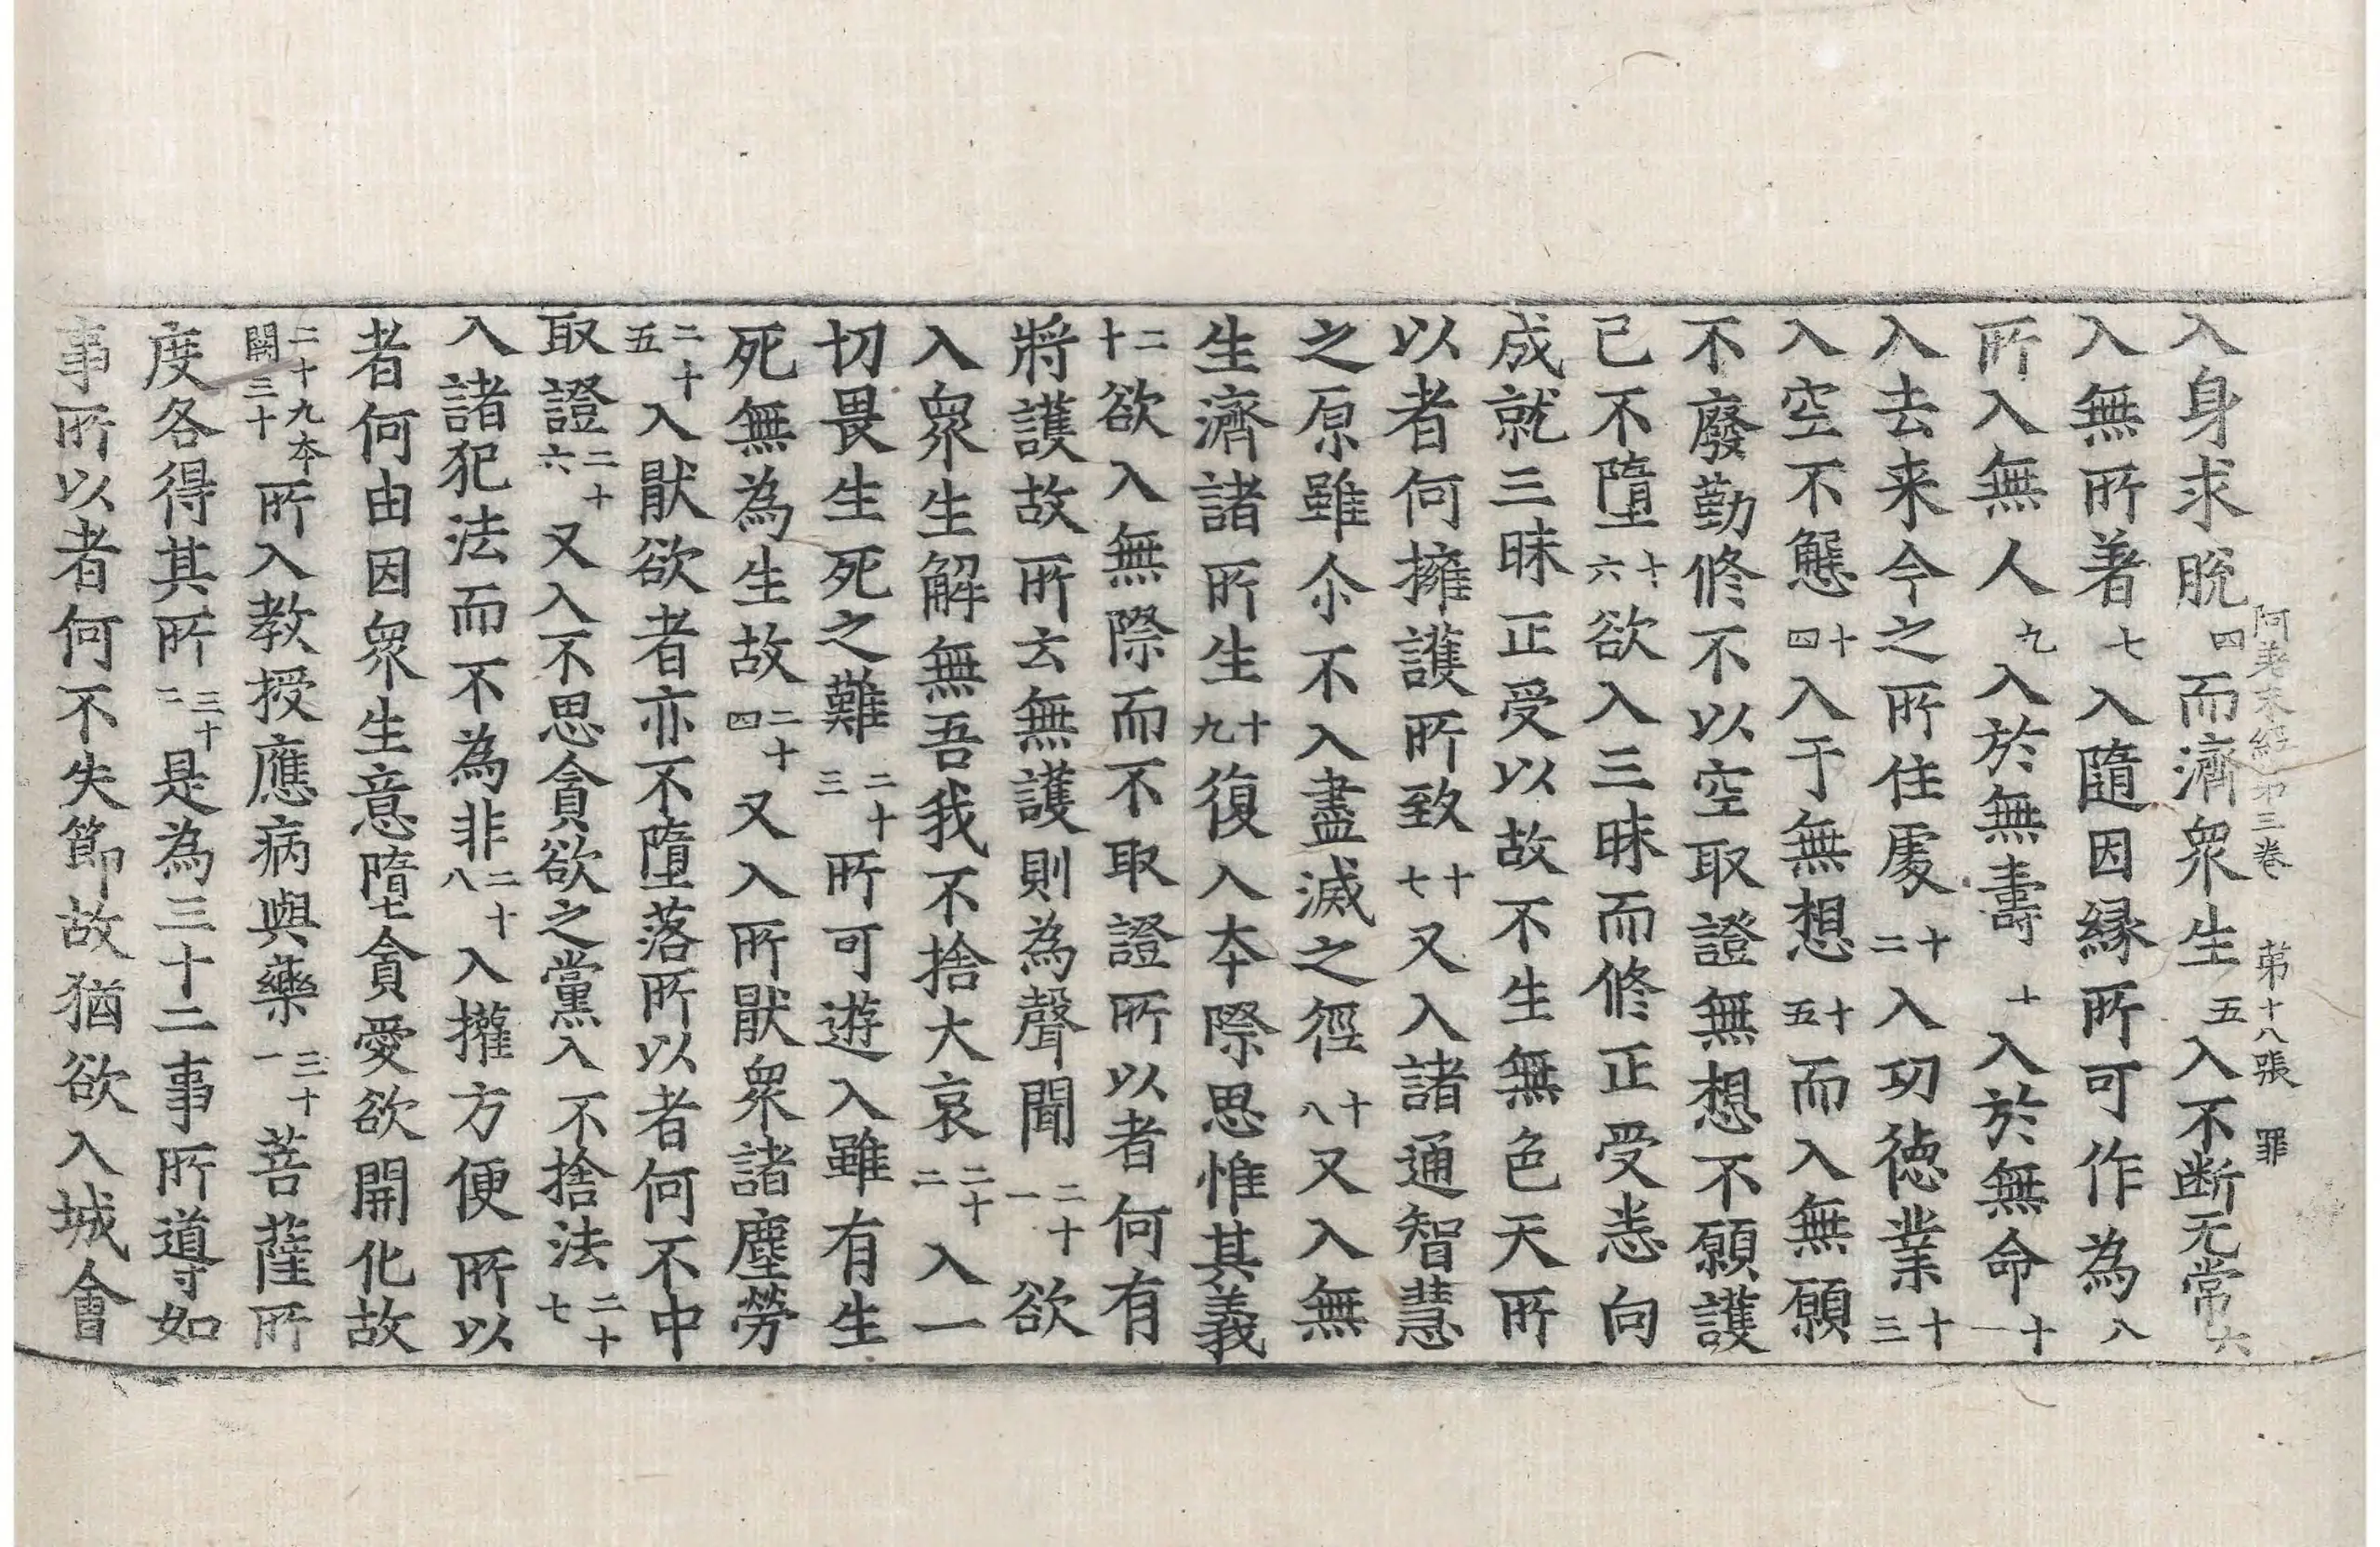 阿差末經第三卷 第十八張 罪
入身求脫四而濟衆生五入不断无常六
入無所著七入隨因緣所可作為八
所入無人九入於無壽十入於無命十一
入去来今之所住處十二入功德業十三
入空不態十四入于無想十五而入無願
不廢勤修不以空取證無想不願護
已不墮十六欲入三昧而修正受悉向
成就三昧正受以故不生無色天所
以者何擁護所致十七又入諸通智慧
之原雖尒不入盡滅之徑十八又入無
生濟諸所生十九復入本際思惟其義
二十欲入無際而不取證所以者何有
將護故所云無護則為聲聞二十一欲
入衆生解無吾我不捨大哀二十二入一
切畏生死之難二十三所可遊入雖有生
死無為生故二十四又入所猒衆諸塵勞
二十五入猒欲者亦不墮落所以者何不中
取證二十六又入不思貪欲之黨入不捨法二十七
入諸犯法而不為非二十八入攉方便所以
者何由因衆生意墮七貪愛欲開化故
二十九本闕三十所入教授應病與藥三十一菩薩所
度各得其所三十二是為三十二事所導如
事所以者何不失節故猶欲入城會